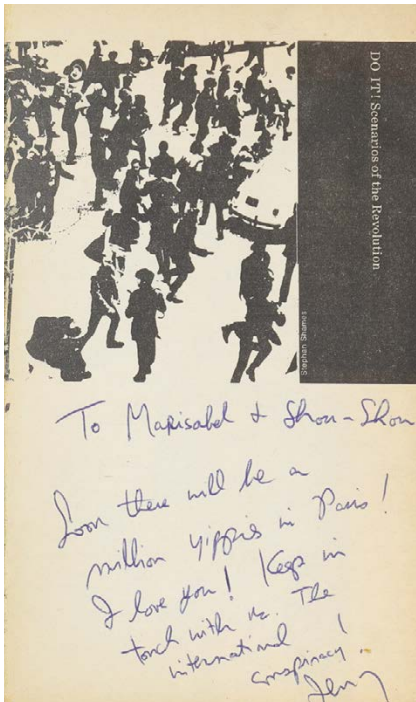 DO IT! Scenarios of the Revolution
Stephen Shames
To Marisabel & Shou-Shou
Soon there will be a
million yippies in Paris!
I love you! Keep in
touch with me. The
international
conspiracy!
Jerry